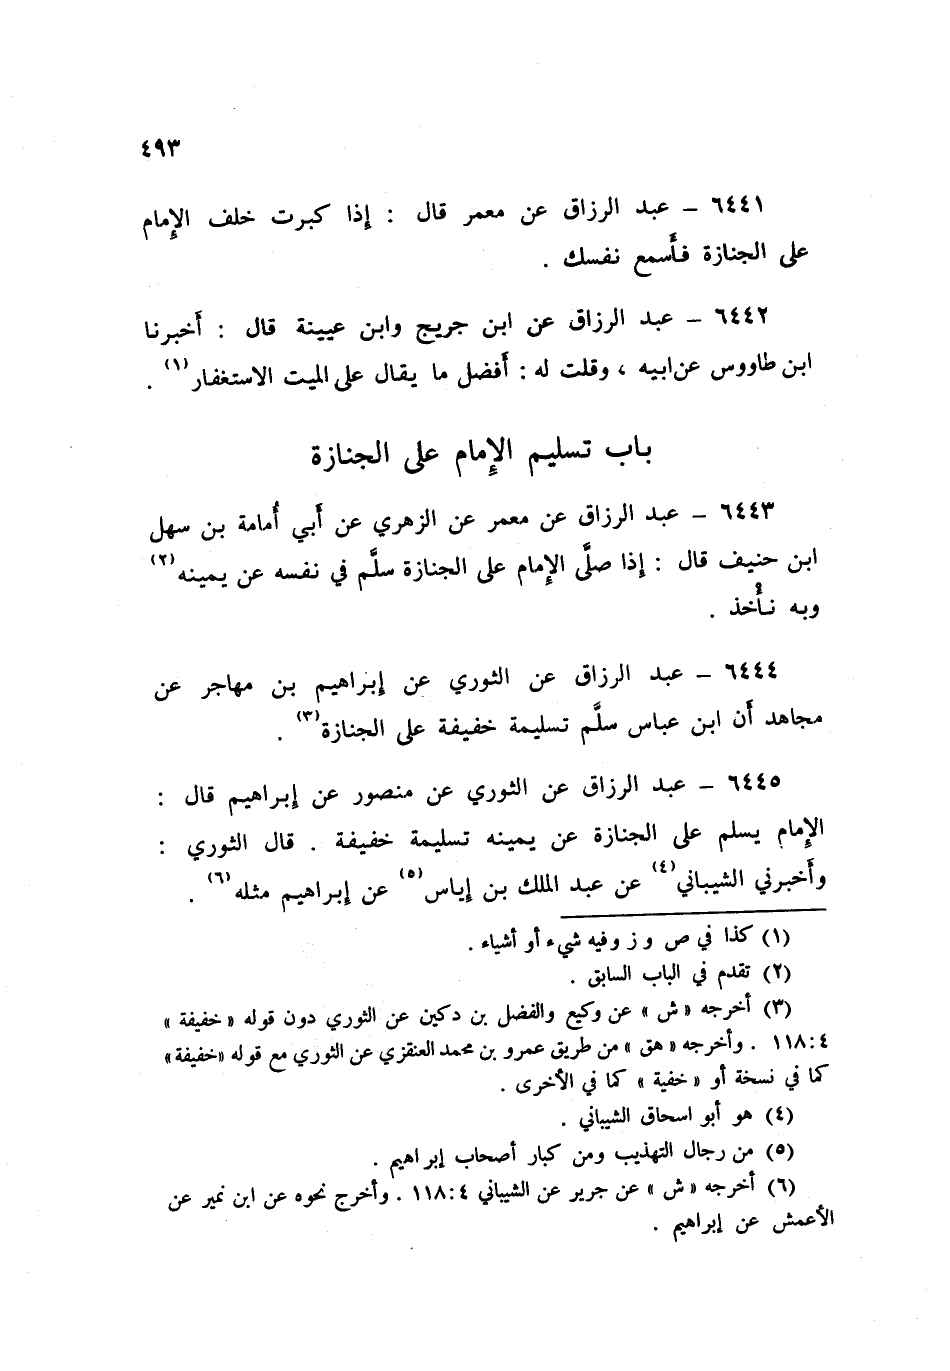 ٤٩٣
٦٤٤١ – عبد الرزاق عن معمر قال : إذا كبرت خلف الإمام
على الجنازة فأَسمع نفسك .
٦٤٤٢ – عبد الرزاق عن ابن جريج وابن عيينة قال : أَخبرنا
ابن طاووس عن ابيه ، وقلت له : أَفضل ما يقال على الميت الاستغفار(١) .
باب تسليم الإمام على الجنازة
٦٤٤٣ – عبد الرزاق عن معمر عن الزهري عن أَبي أُمامة بن سهل
ابن حنيف قال : إذا صلَّى الإمام على الجنازة سلَّم في نفسه عن يمينه(٢)
وبه نأْخذ .
٦٤٤٤ – عبد الرزاق عن الثوري عن إبراهيم بن مهاجر عن
مجاهد أَن ابن عباس سلَّم تسليمة خفيفة على الجنازة(٣) .
٦٤٤٥ – عبد الرزاق عن الثوري عن منصور عن إبراهيم قال :
الإمام يسلم على الجنازة عن يمينه تسليمة خفيفة . قال الثوري :
وأَخبرني الشيباني(٤) عن عبد الملك بن إياس(٥) عن إبراهيم مثله(٦) .
(١) كذا في ص و ز وفيه شيء أو أشياء .
(٢) تقدم في الباب السابق .
(٣) أخرجه « ش » عن وكيع والفضل بن دكين عن الثوري دون قوله « خفيفة »
٤:١١٨ . وأخرجه « هق » من طريق عمرو بن محمد العنقزي عن الثوري مع قوله «خفيفة»
كما في نسخة أو « خفية » كما في الأخرى .
(٤) هو أبو اسحاق الشيباني .
(٥) من رجال التهذيب ومن كبار أصحاب إبراهيم .
(٦) أخرجه « ش » عن جرير عن الشيباني ٤:١١٨ . وأخرج نحوه عن ابن نمير عن
الأعمش عن إبراهيم .